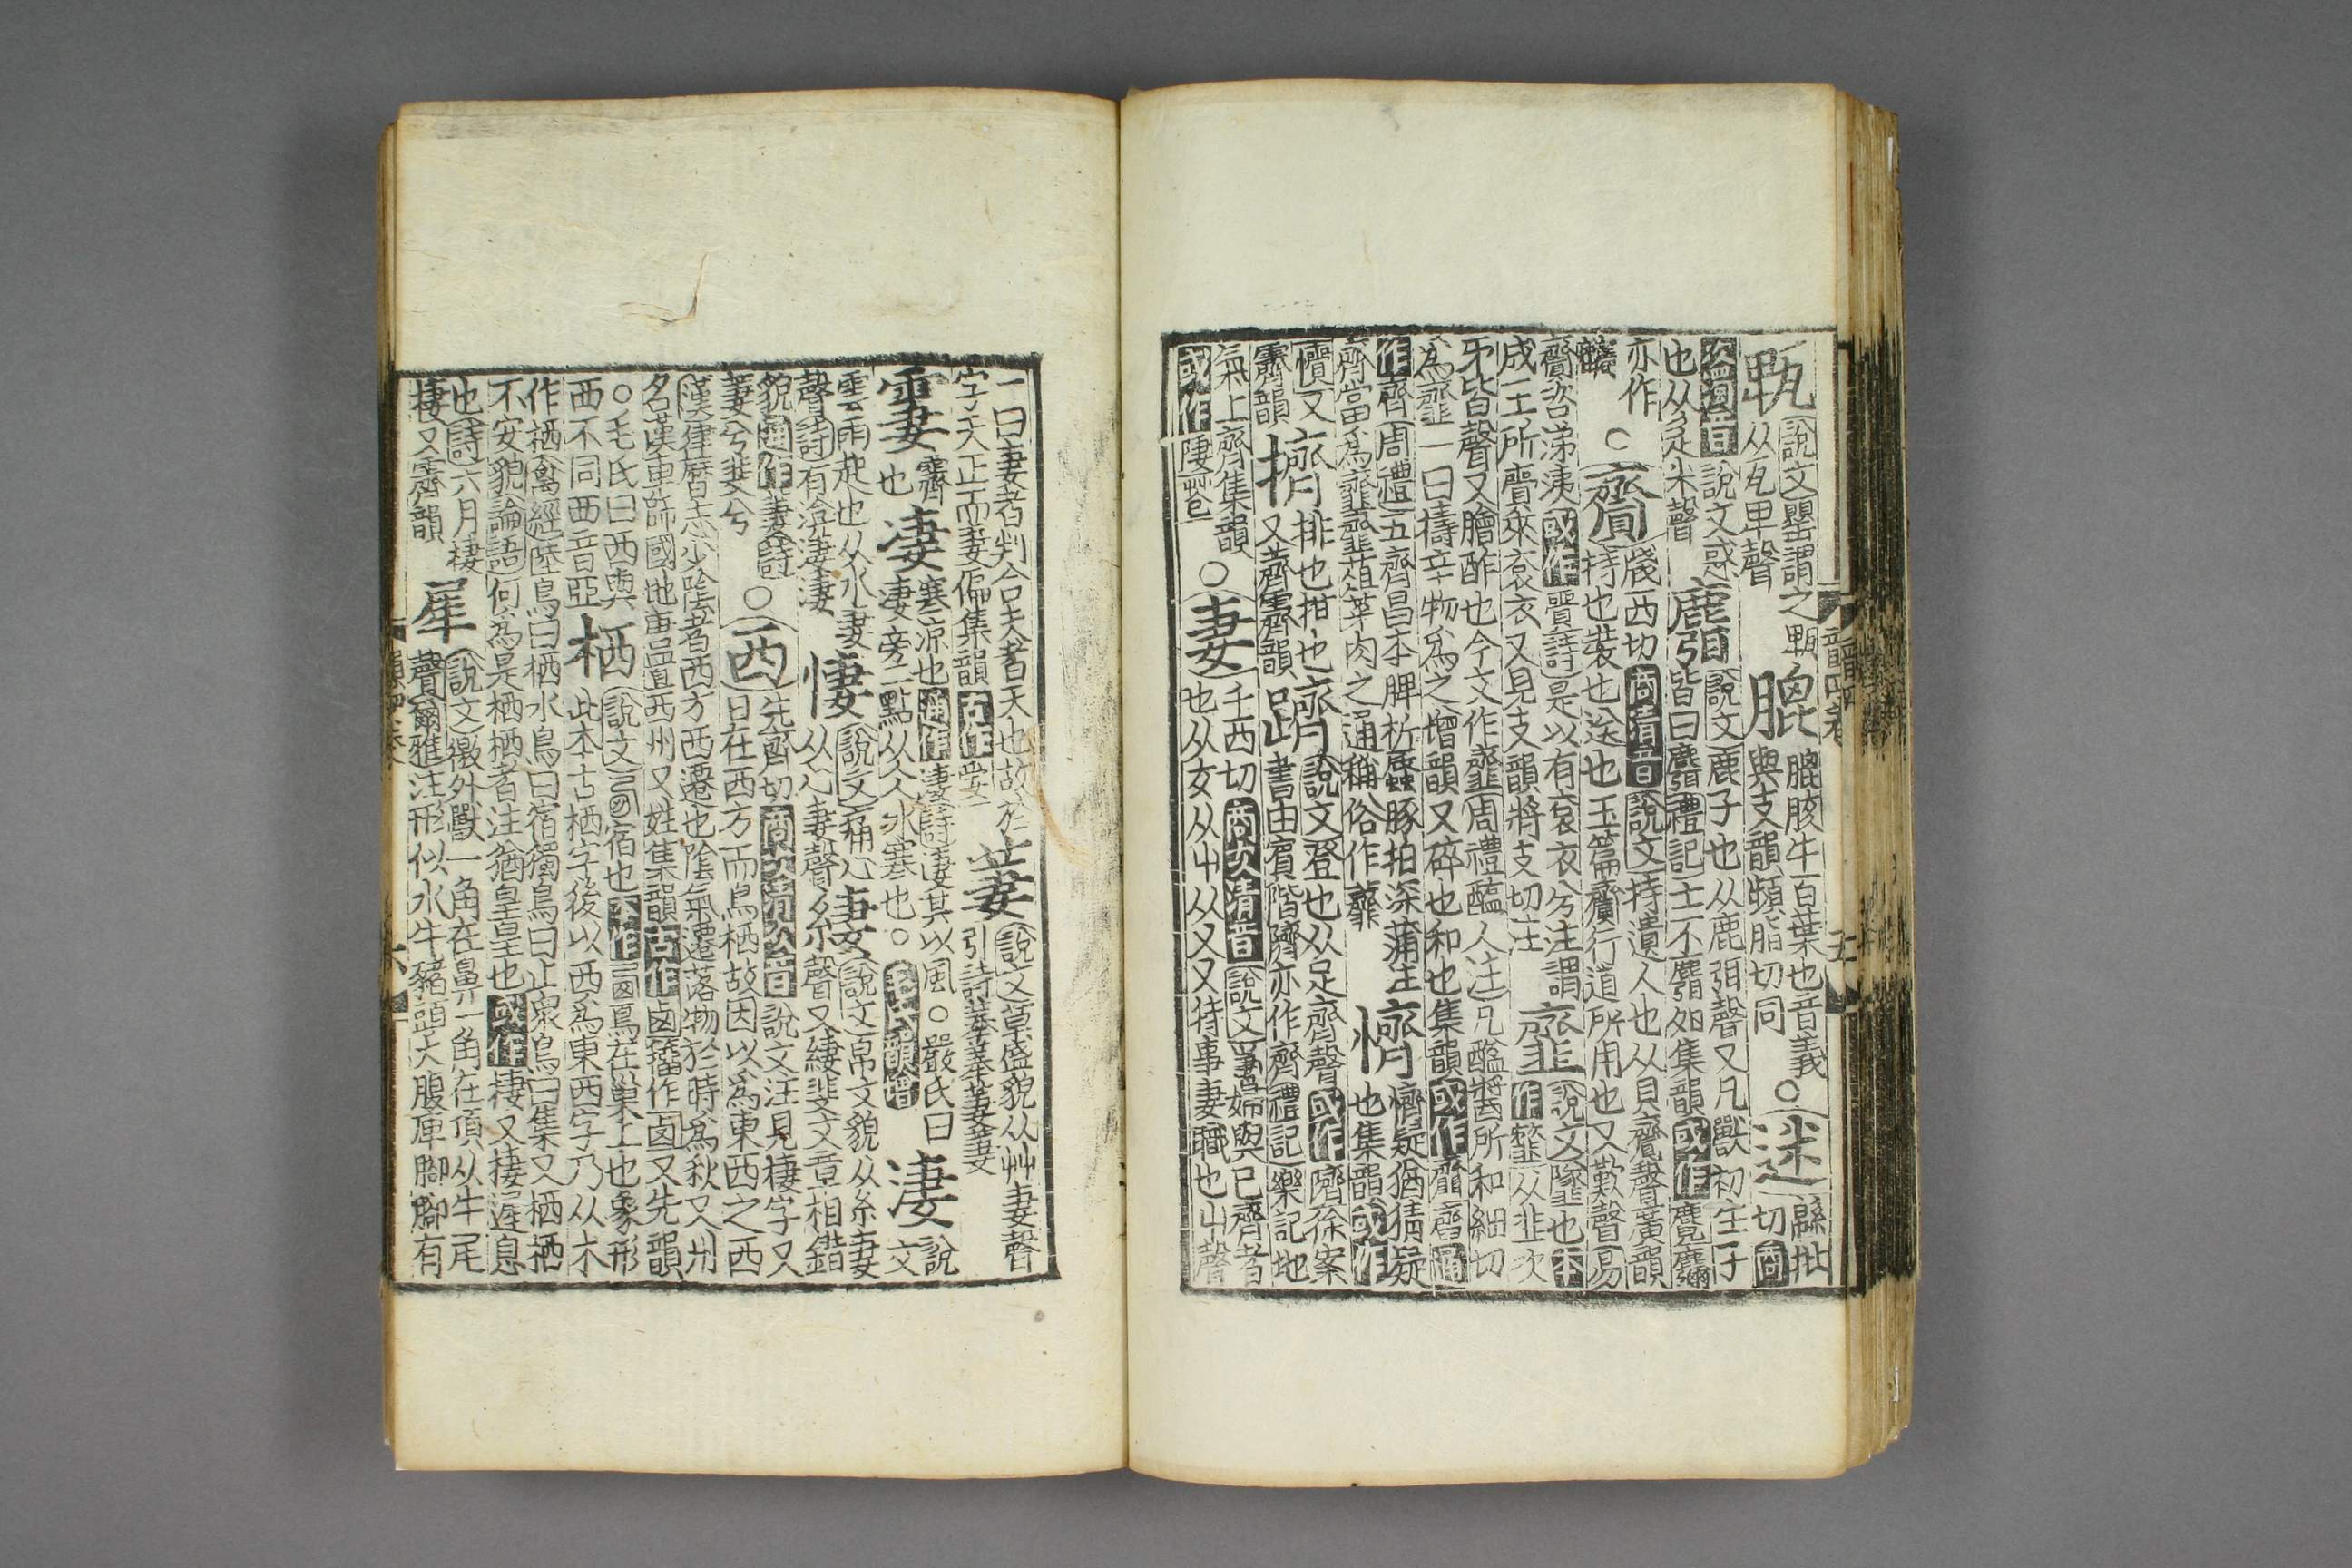 㼰
說文罌謂之㼰
从瓦卑聲
膍
膍胲牛百葉也音義
與支韻頻脂切同
○迷
緜批切宮
次濁音
說文惑
也从辵米聲
麛
說文鹿子也从鹿弭聲又凡獸初生子
皆曰麛禮記士不麛卵集韻或作麑
亦作
○齎
牋西切商清音說文持遺人也从貝齊聲廣韻
持也裝也送也玉篇齎行道所用也又歎聲易
齎咨涕洟或作
詩是以有袞衣兮注謂
成王所齎來袞衣又見支韻將支切注
說文墜也本
作
从韭次
𠂔皆聲又膾酢也今文作齏周禮醢人注凡醯醬所和細切
為齏一曰擣辛物為之增韻又碎也和也集韻或作
通
作齊周禮五齊昌本脾析蜃豚拍深蒲注
齊當為齏齏菹菜肉之通稱俗作
懠
懠疑猶猜疑
也集韻或作
懫又
霽韻
擠
排也拑也
又薺霽韻
躋
說文登也从足齊聲或作隮徐案
書由賓階隮亦作齊禮記樂記地
氣上齊集韻
或作
○妻
千西切商次清音說文婦與己齊者
也从女从屮从又又持事妻職也屮聲
一曰妻者判合夫者天也故於
字天正而妻偏集韻古作
萋
說文草盛貌从艸妻聲
引詩菶菶萋萋
霋
霽
也
凄
寒涼也通作淒詩淒其以風○嚴氏曰
凄旁二點从仌仌寒也○毛氏韻增
淒
說文
雲雨起也从水妻
聲詩有渰淒淒
悽
說文痛心
从心妻聲
緀
說文帛文貌从糸妻
聲又緀斐文章相錯
貌通作萋詩
萋兮斐兮
○西
先齊切商次清次音說文注見棲字又
日在西方而鳥栖故因以為東西之西
漢律曆志少陰者西方西遷也陰氣遷落物於時為秋又州
名漢車師國地唐置西州又姓集韻古作卤籀作卥又先韻
○毛氏曰西與
西不同西音亞
栖
說文
宿也本作
鳥在巢上也象形
此本古栖字後以西為東西字乃从木
作栖禽經陸鳥曰栖水鳥曰宿獨鳥曰止衆鳥曰集又栖栖
不安貌論語何為是栖栖者注猶皇皇也或作棲又棲遲息
也詩六月棲
棲又霽韻
犀
說文徼外獸一角在鼻一角在頂从牛尾
聲爾雅注形似水牛豬頭大腹庳腳腳有